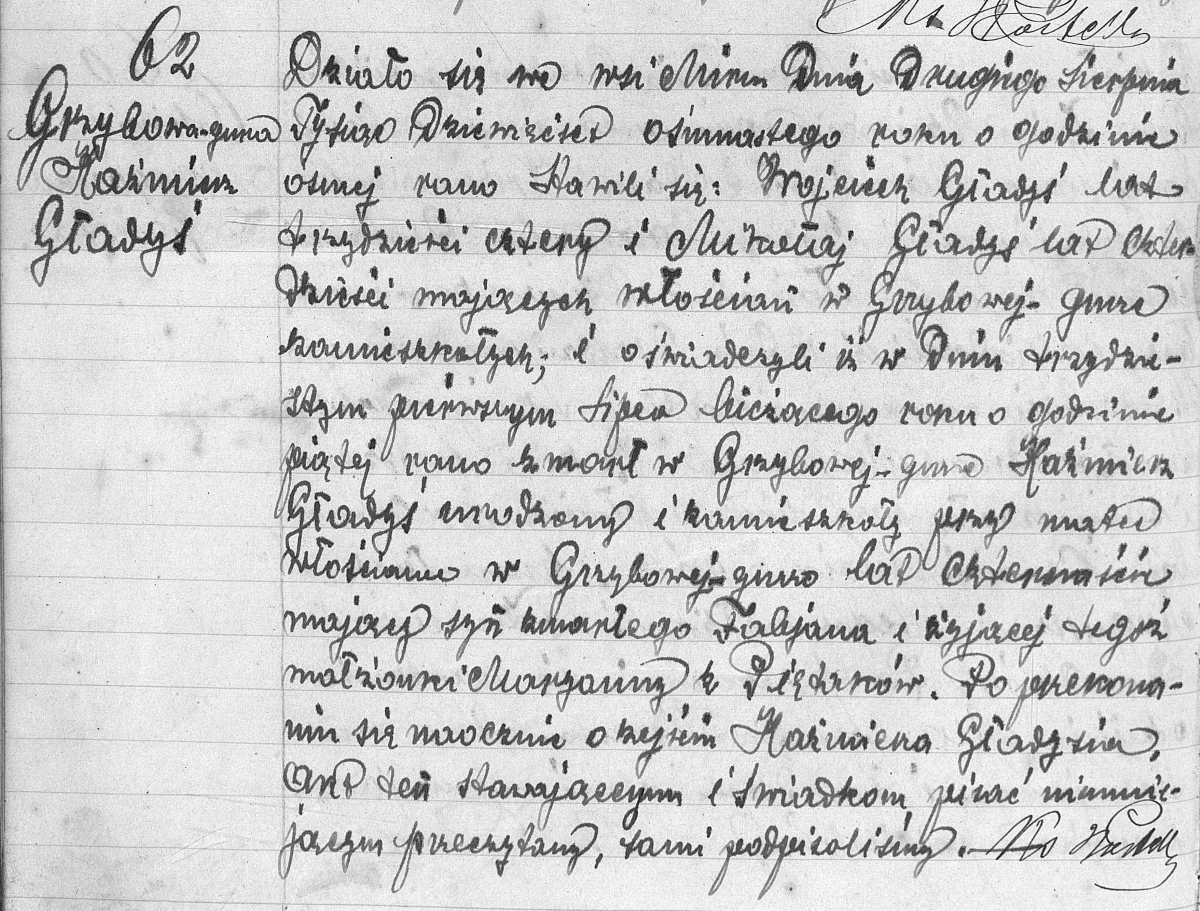 62
Grzybowa-gura
Kaźmierz
Gładyś
Działo się we wsi Mircu Dnia Drugiego Sierpnia
Tysiąc Dziewięćset osimnastego roku o godzinie
osmej rano Stawili się: Wojciech Gładyś lat
trzydzieści cztery i Mikołaj Gładyś lat czter-
dzieści mających włościan w Grzybowej-gurze
zamieszkałych; i oświadczyli iż w Dniu trzydzie-
stym pierwszym Lipca bieżącego roku o godzinie
piątej rano zmarł w Grzybowej-gurze Kaźmierz
Gładyś urodzony i zamieszkały przy matce
włościance w Grzybowej-gurze lat czternaście
mający syn zmarłego Fabjana i żyjącej tegoż
małżonki Maryanny z Piętaków. Po przekona-
niu się naocznie o zejściu Kaźmierza Gładysia,
Akt ten stawającym i świadkom pisać nieumie-
jącym przeczytany, sami podpisaliśmy.